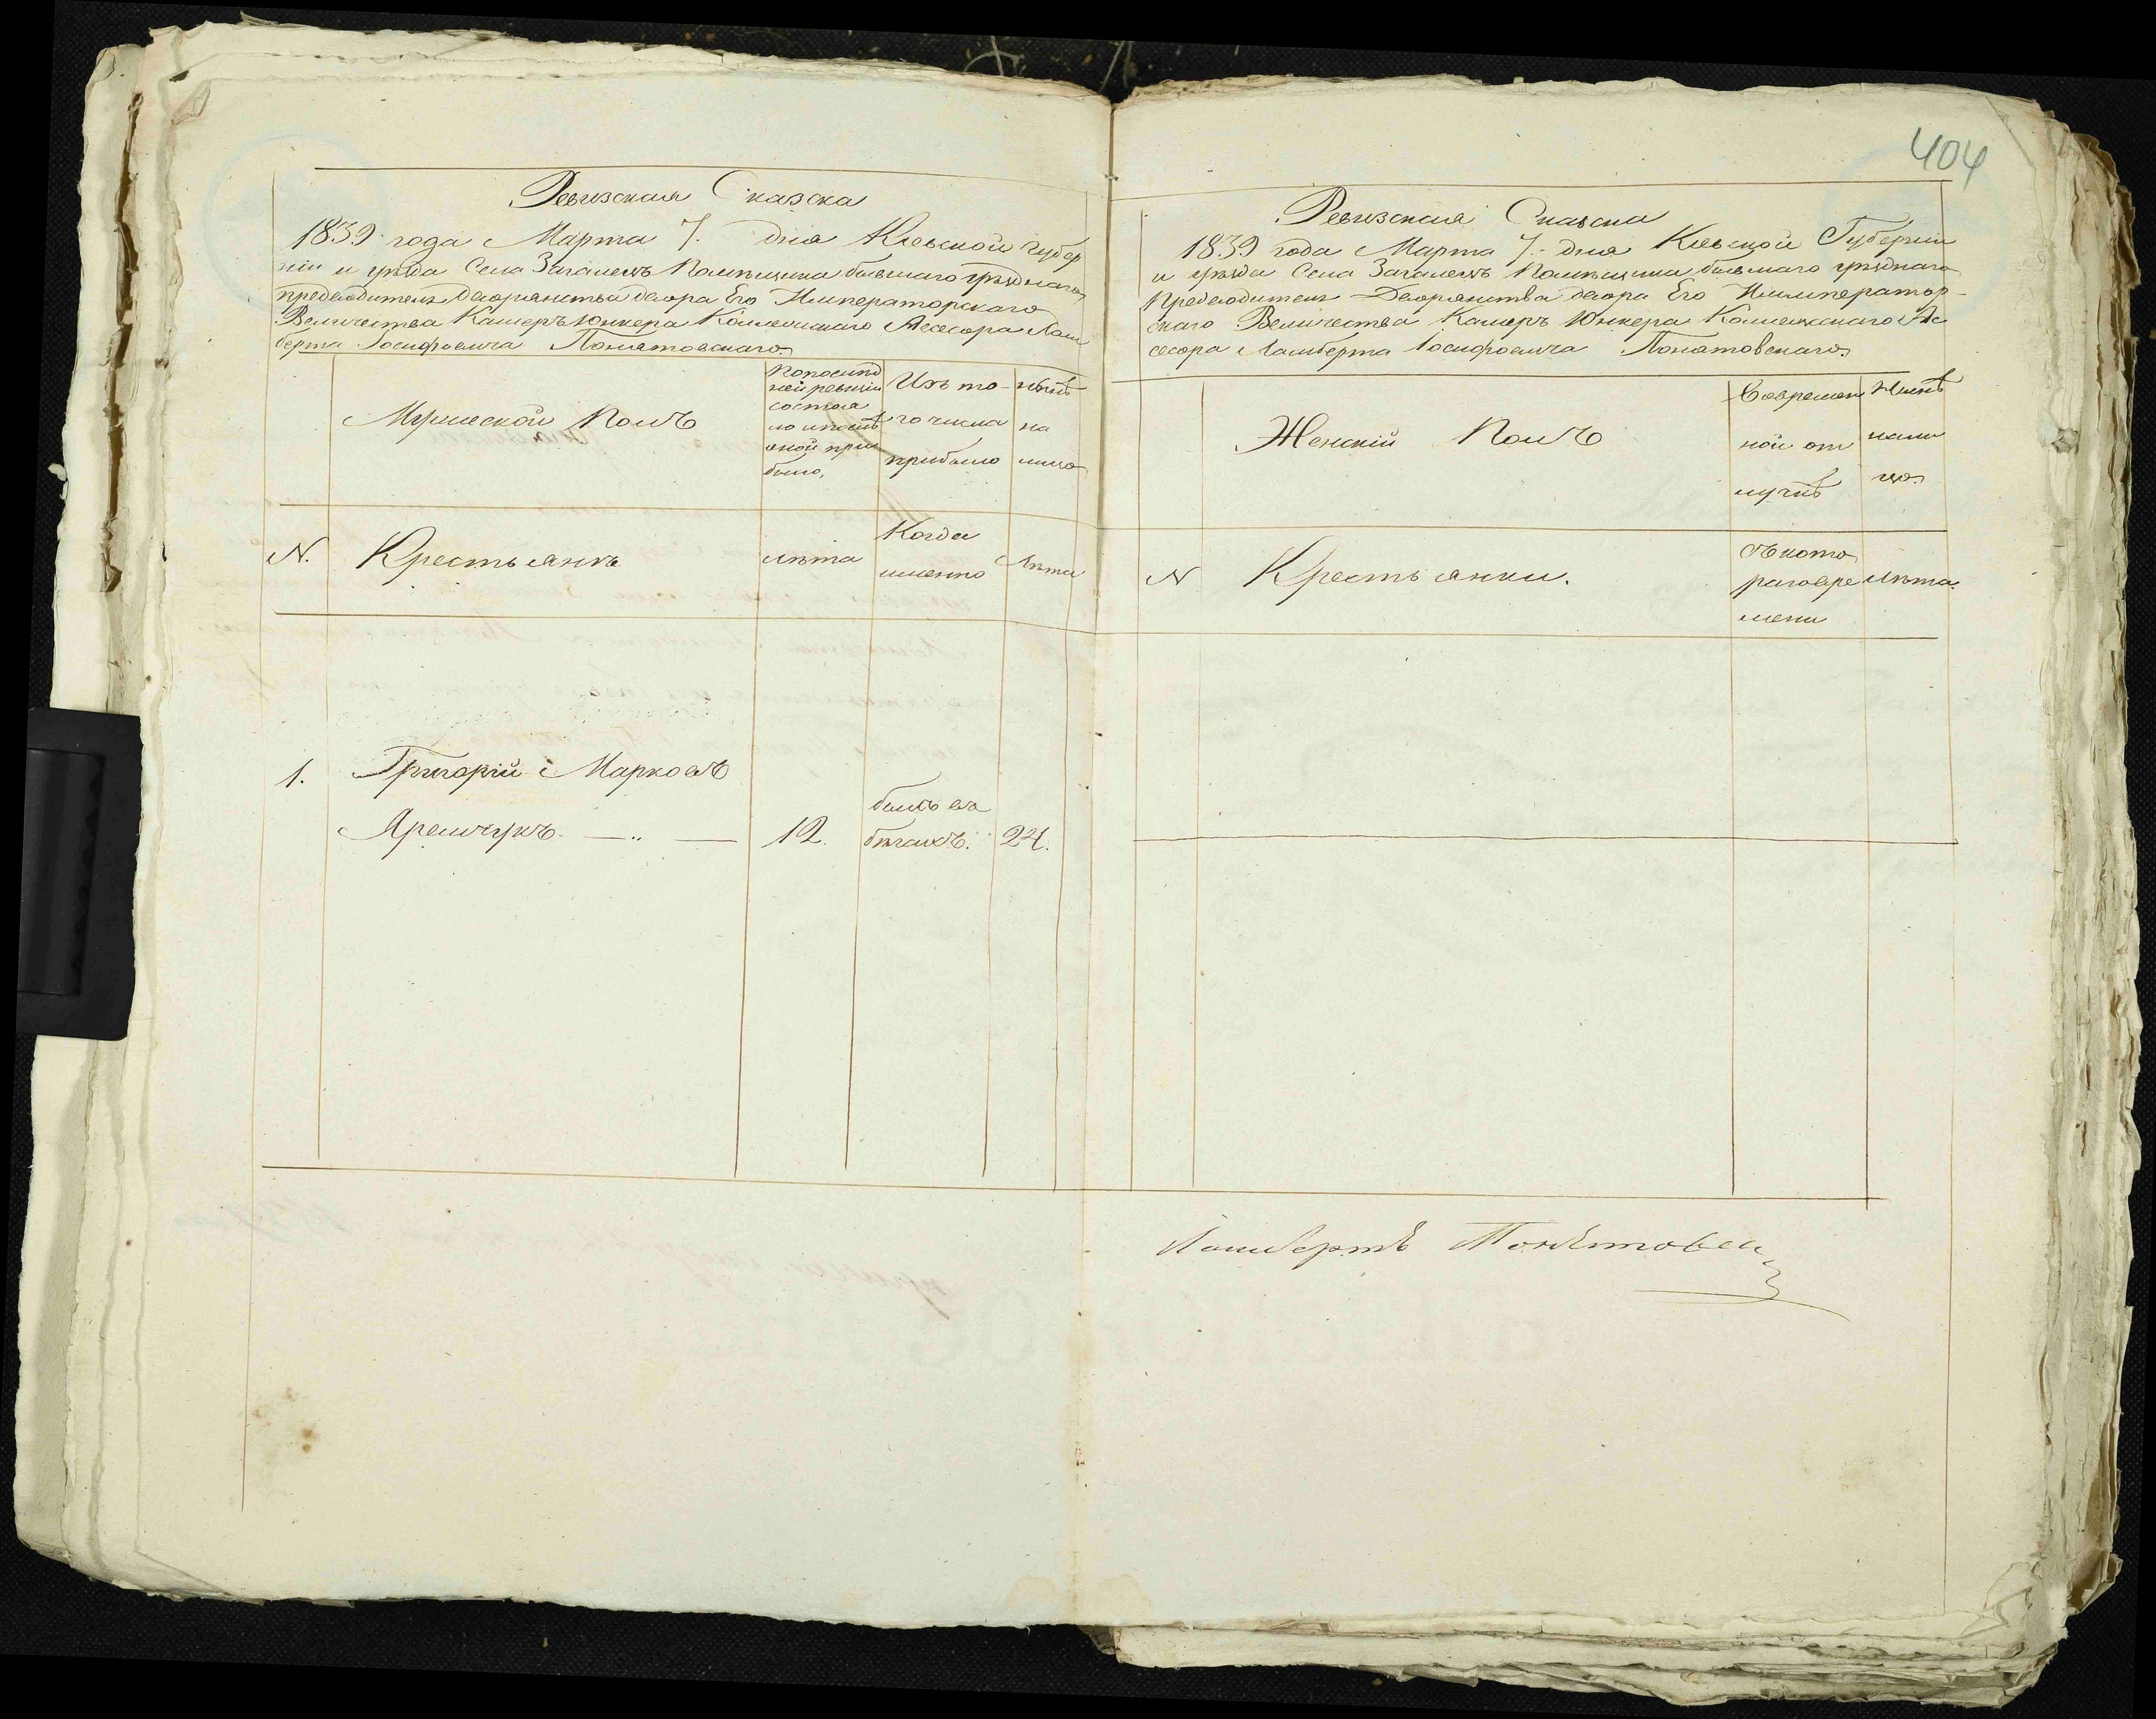 404
Ревизская Сказка
1839 года Марта 7. дня Киевской Губер
ніи и уѣзда Села Загалецъ Помѣщика бывшаго уѣзднаго
предводителя Дворянства двора Его Императорскаго
Величества Камеръ Юнкера Коллежскаго Асесора Лам
берта Іосифовича Понятовскаго
Мужеской Полъ
По послѣд
ней ревизіи
состоя
ло и послѣ
оной при
было,
Изъ то
го числа
прибыло
нынѣ
на
лицо
N.
Крестьянъ
лѣта
Когда
именно
Лѣта
1. Григорій Марковъ
Яремчукъ 12. 24.
былъ въ
бѣгахъ.
Ревизская Сказка
1839 года Марта 7. дня Киевской Губерніи
и уѣзда Села Загалецъ Помѣщика бывшаго уѣзднаго
Предводителя Дворянства двора Его Император-
скаго Величества Камеръ Юнкера Коллежскаго Ас
сесора Ламберта Іосифовича Понятовскаго
Женскій Полъ
Во времен
ной от
лучкѣ
Нынѣ
нали
цо
N
Крестьянки.
Съ кото
раго вре
мени
лѣта.
Ламбертъ Понятовск